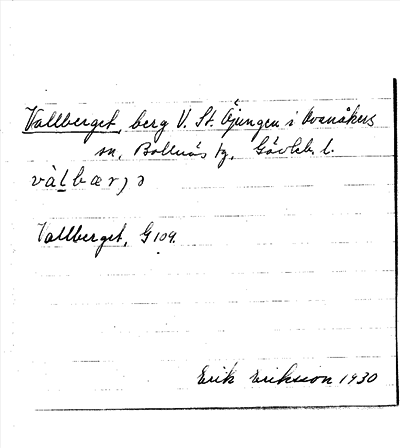 Vallberget, berg V. St. Öjungen i Ovanåkers
sn, Bollnäs tg, Gävleb. l.
và̀lbærjə
Vallberget, G 109.
Erik Eriksson 1930